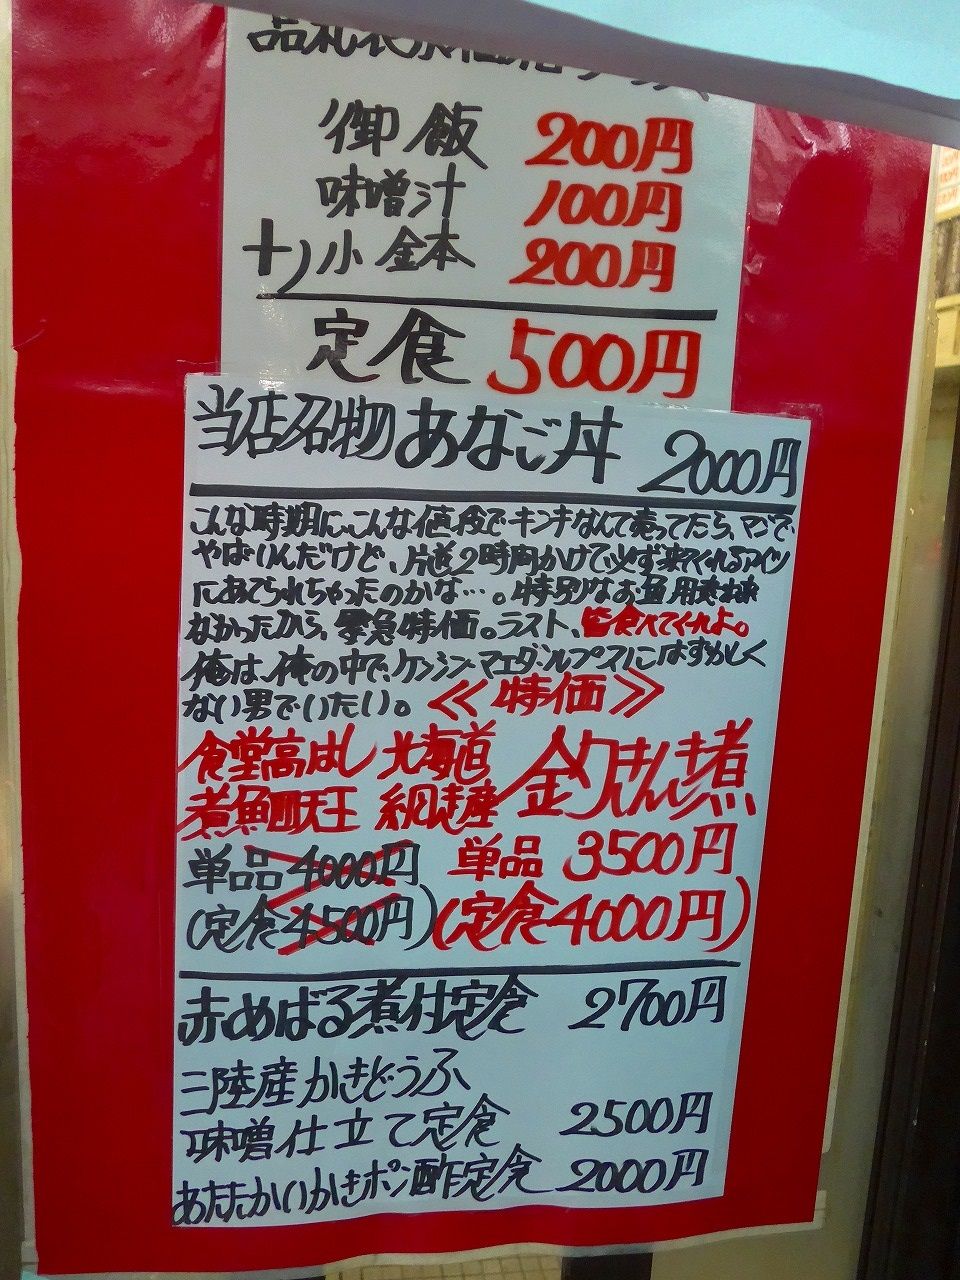 御飯 200円
味噌汁 100円
+)小鉢 200円
定食 500円
当店名物あなご丼 2000円
こんな時期に、こんな値段でキンキなんて売ってたら、マジで、
やばいんだけど、片道2時間かけて必ず来てくれるアイツ
にあてられちゃったのかな…。特別なお魚用意出来
なかったから、緊急特価。ラスト、皆食べてくれよ。
俺は、俺の中で、ケンシン・マエダ・ルプスにはずかしく
ない男でいたい。≪特価≫
食堂高はし 北海道 釣きんき煮
煮魚眼天王 網走産
単品4000円 単品 3500円
(定食4500円) (定食4000円)
赤めばる煮付定食 2700円
三陸産かきどうふ
味噌仕立て定食 2500円
あたたかいかきポン酢定食 2000円